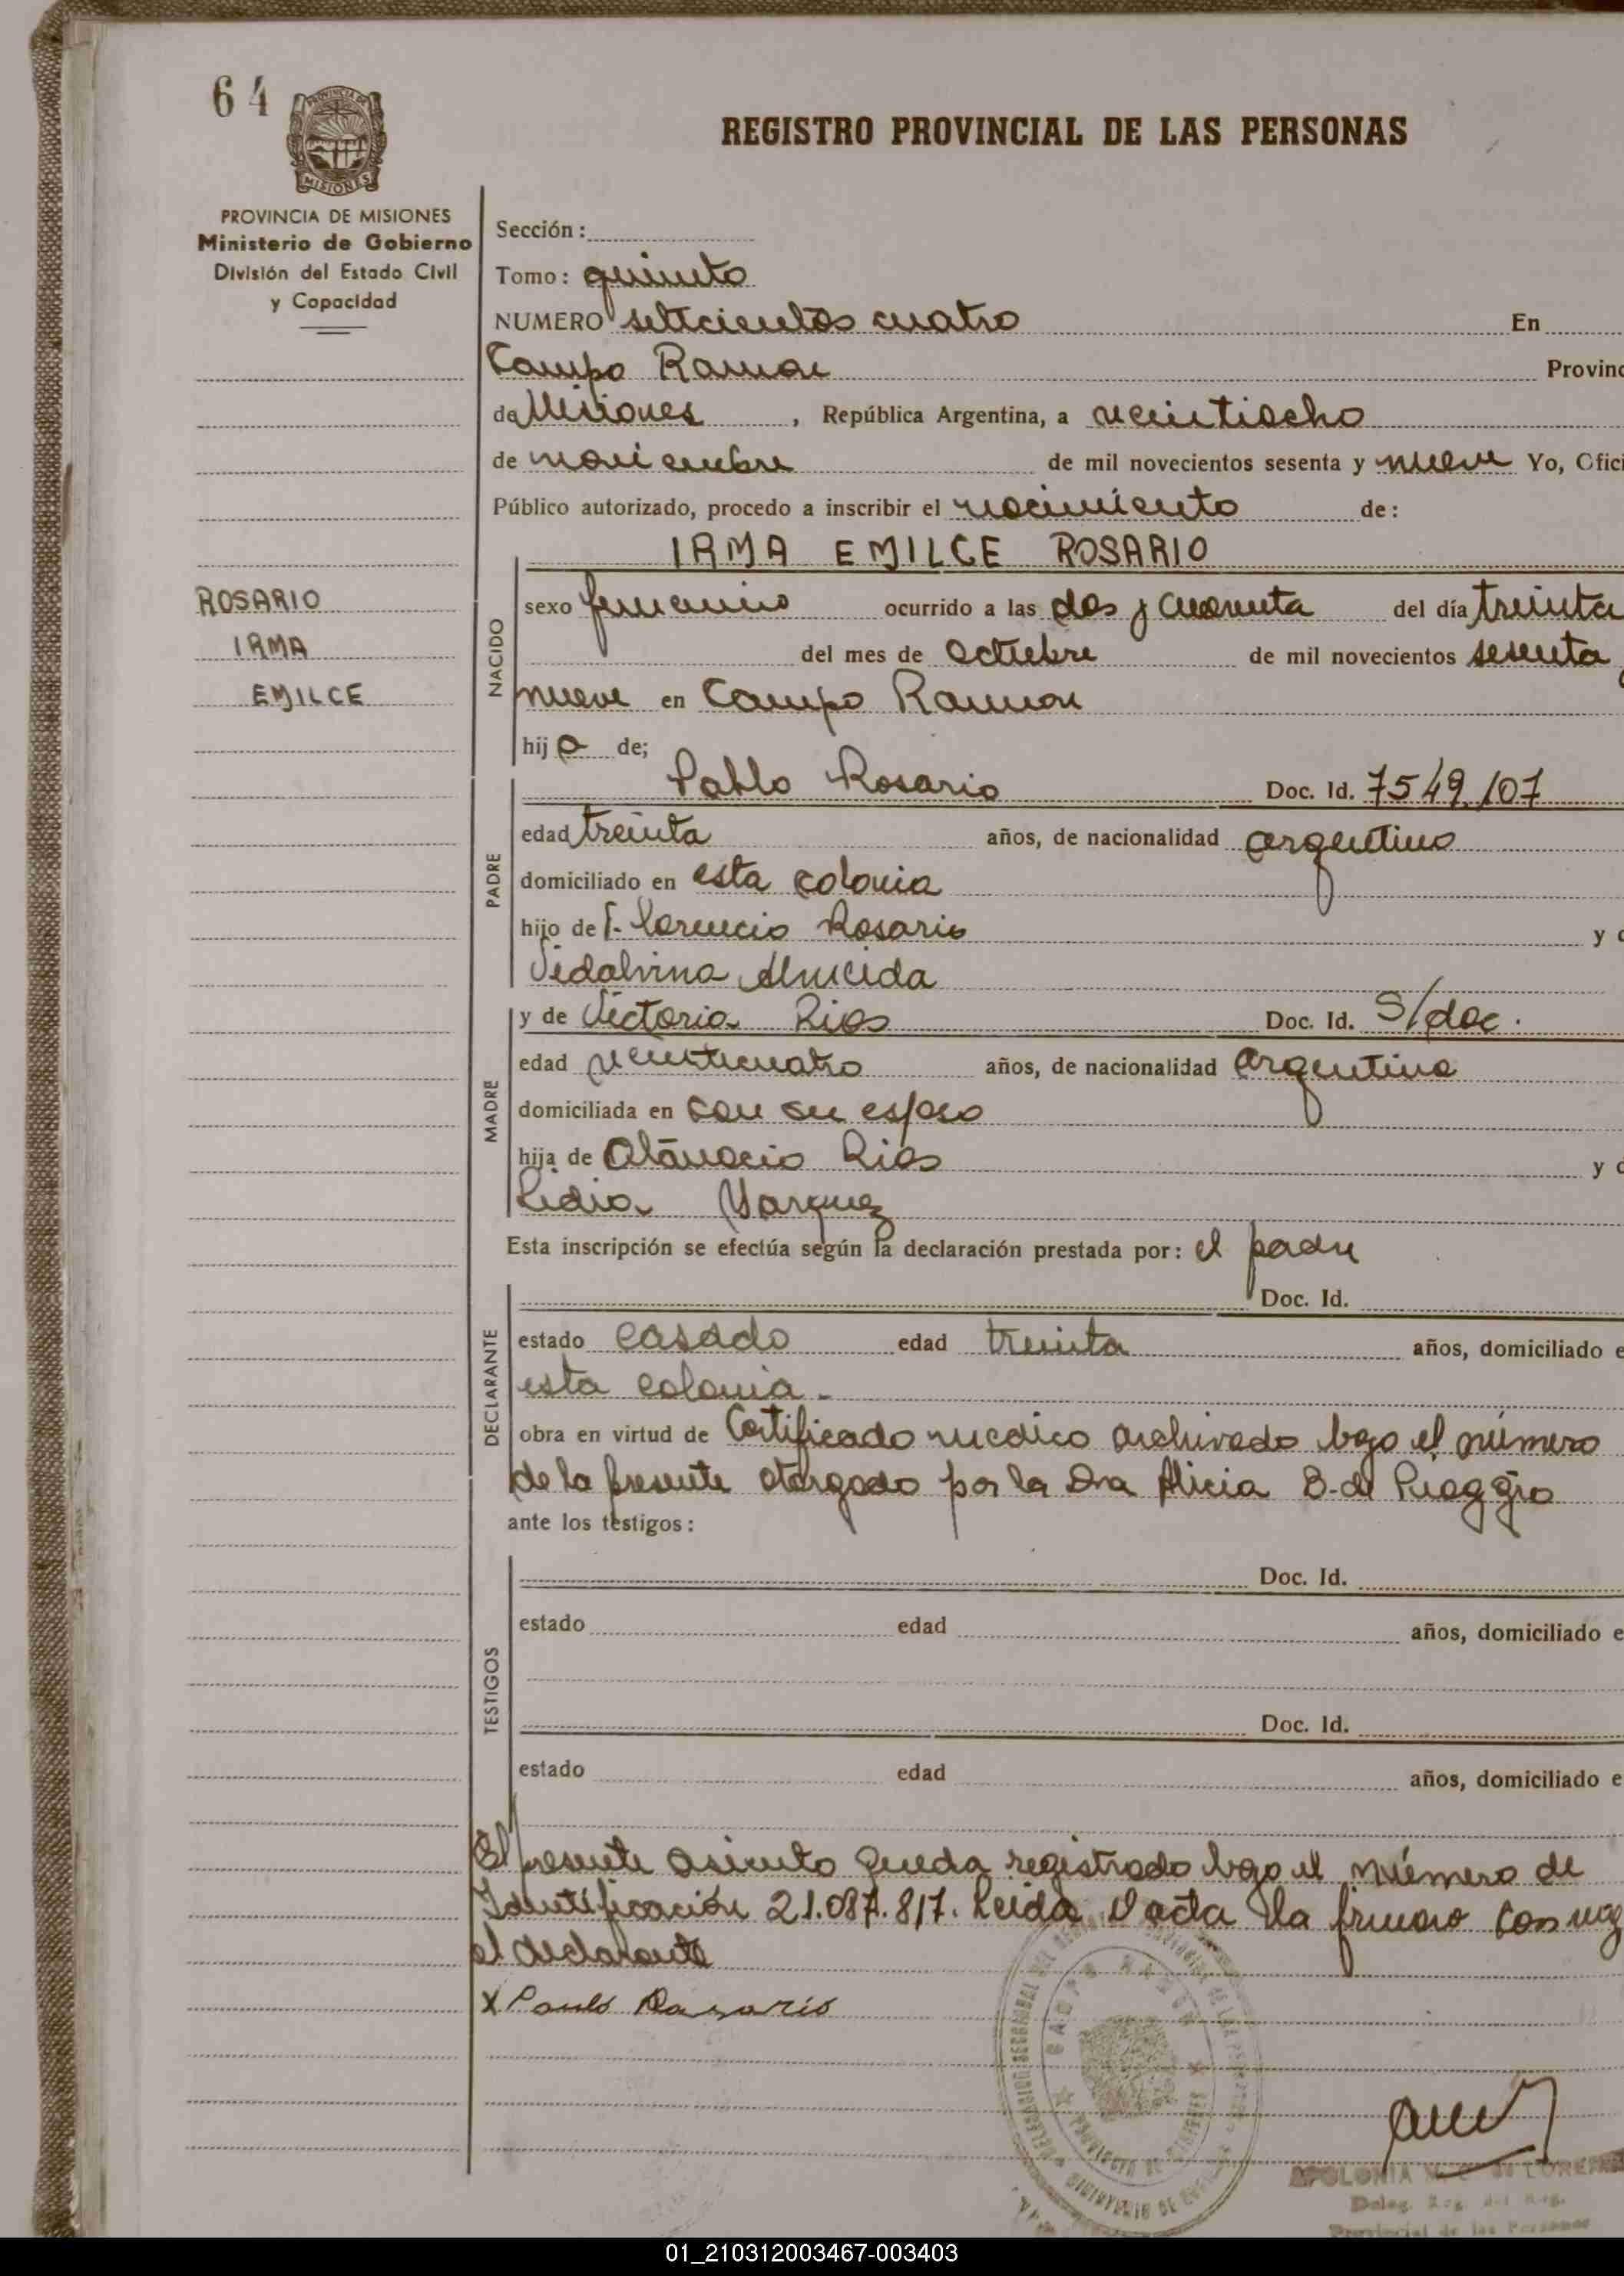 64
PROVINCIA DE
MISIONES
REGISTRO PROVINCIAL DE LAS PERSONAS
PROVINCIA DE MISIONES
Ministerio de Gobierno
División del Estado Civil
y Capacidad
Sección :
Tomo : quinto
NUMERO setecientos cuatro En
Campo Ramon Provinc
de Misiones , República Argentina, a veintiocho
de noviembre de mil novecientos sesenta y nueve Yo, Ofici
Público autorizado, procedo a inscribir el nacimiento de :
IRMA EMILCE ROSARIO
ROSARIO
IRMA
EMILCE
NACIDO
sexo femenino ocurrido a las dos y cuarenta del día treinta
del mes de octubre de mil novecientos sesenta y
nueve en Campo Ramon
hij a de;
PADRE
Pablo Rosario Doc. Id. 7549.107
edad treinta años, de nacionalidad argentino
domiciliado en esta colonia
hijo de Florencio Rosario y d
Vidalvina Almeida
MADRE
y de Victoria Rios Doc. Id. S/doc.
edad veinticuatro años, de nacionalidad argentina
domiciliada en con su esposo
hija de Atanacio Rios y d
Lidia Varguez
Esta inscripción se efectúa según la declaración prestada por : el padre
DECLARANTE
Doc. Id.
estado casado edad treinta años, domiciliado e
esta colonia -
obra en virtud de Certificado medico archivado bajo el número
de la presente otorgado por la Dra Alicia B. de Piaggio
ante los testigos :
TESTIGOS
Doc. Id.
estado edad años, domiciliado e
Doc. Id.
estado edad años, domiciliado e
El presente asiento queda registrado bajo el número de
Identificación 21.087.817. Leida el acta la firman con
el declarante
x Paulo Rosario
CAMPO RAMON
PROVINCIA DE MISIONES
MINISTERIO DE
APOLONIA
Deleg.
Provincial de las Personas
01_210312003467-003403